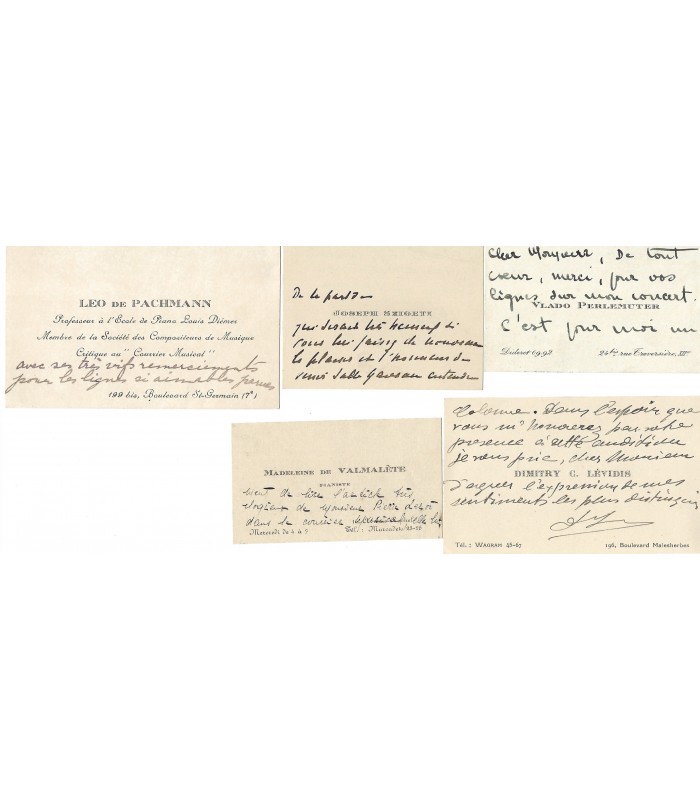 LEO DE PACHMANN
Professeur à l'Ecole de Piano Louis Diémer
Membre de la Société des Compositeurs de Musique
Critique au "Courrier Musical"
avec ses très vifs remerciements
pour les lignes si aimables parues
199 bis, Boulevard St-Germain (7e)
De la part de
JOSEPH SZIGETI
qui serait
le plaisir et l'honneur de
Salle Gaveau
Cher Monsieur, De tout
cœur, merci, pour vos
lignes sur mon concert.
VLADO PERLEMUTER
C'est pour moi un
Diderot 69.92
24bis rue Traversière, XIIe
MADELEINE DE VALMALÈTE
PIANISTE
vient de lire l'article très
élogieux de Monsieur
dans le courrier
Mercredi de 4 à 7
Tél. : Marcadet
Colonne. Dans l'espoir que
vous m'honorerez par votre
présence à cette audition
je vous prie, cher Monsieur
DIMITRY C. LÉVIDIS
d'agréer l'expression de mes
sentiments les plus distingués
Tél. : WAGRAM 48-67
196, Boulevard Malesherbes